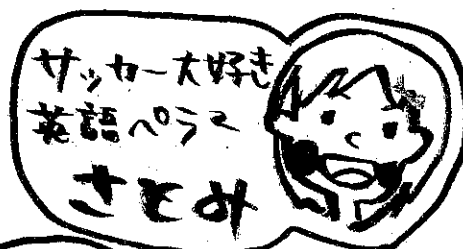 サッカー大好き
英語ペラマ
さとみ